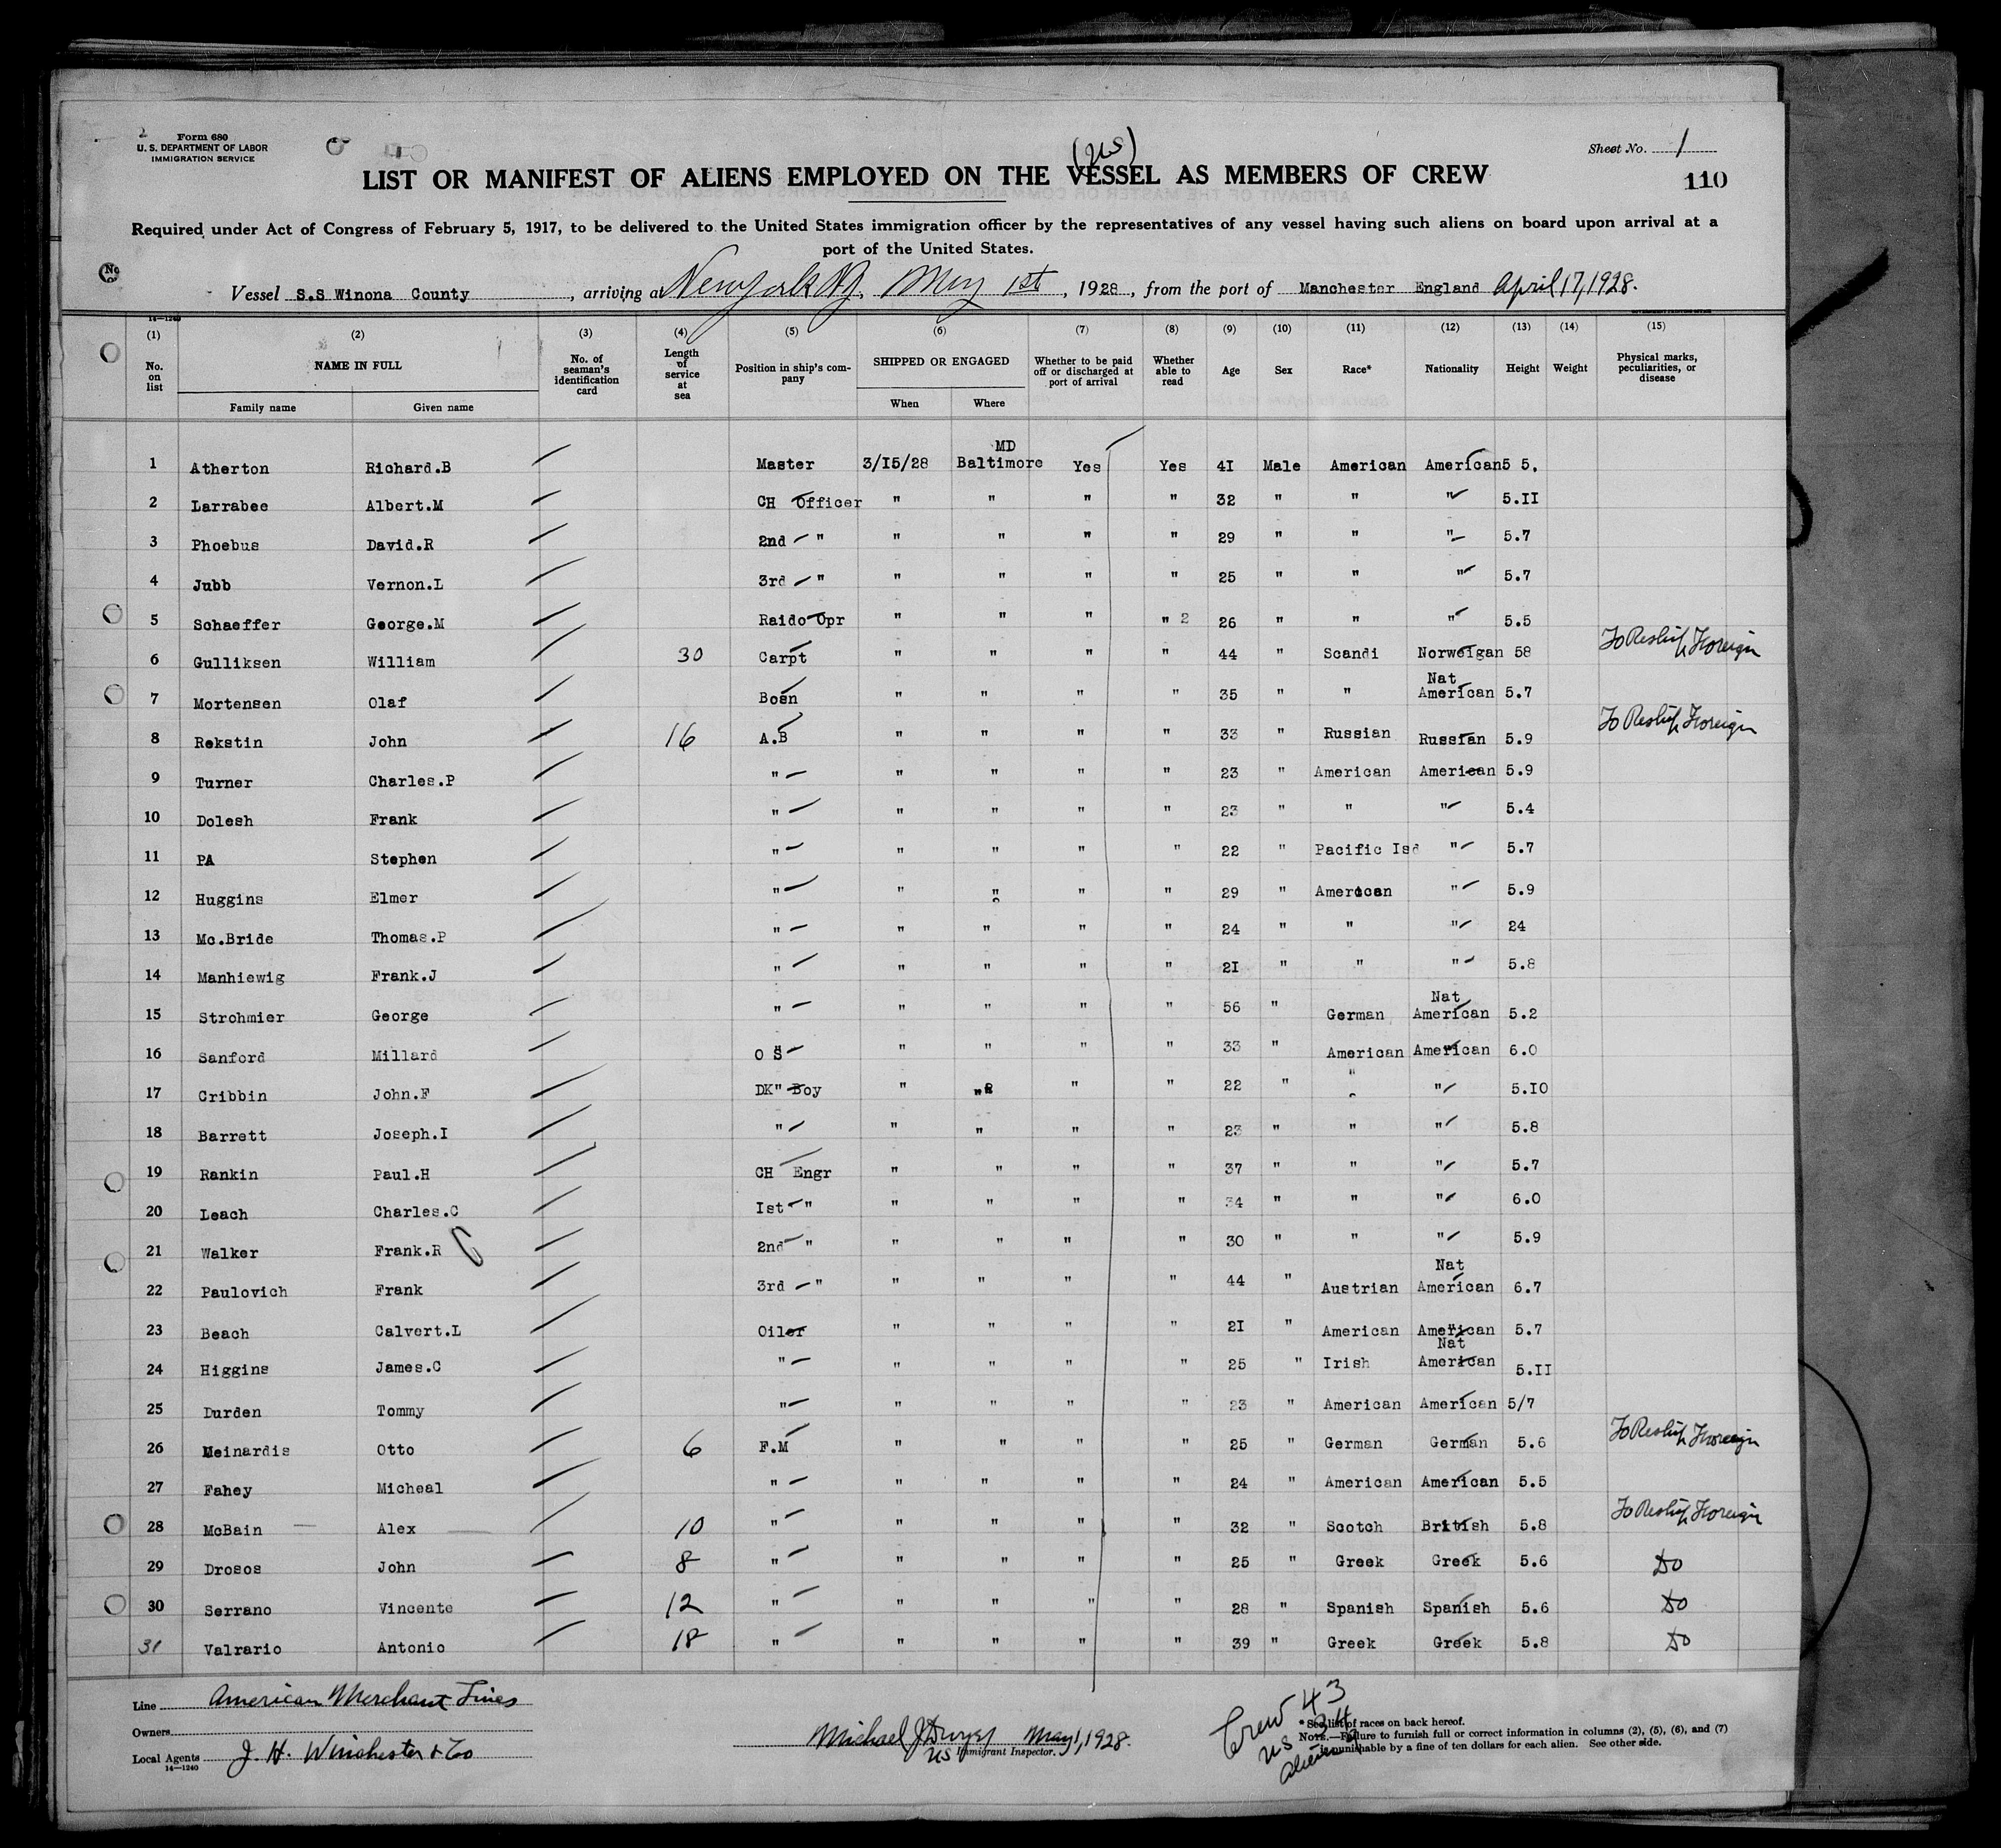 2
Form 680
U. S. DEPARTMENT OF LABOR
IMMIGRATION SERVICE
Sheet No. 1
(US)
LIST OR MANIFEST OF ALIENS EMPLOYED ON THE VESSEL AS MEMBERS OF CREW
110
Required under Act of Congress of February 5, 1917, to be delivered to the United States immigration officer by the representatives of any vessel having such aliens on board upon arrival at a
port of the United States.
Vessel S.S Winona County, arriving at New York NY. May 1st, 1928, from the port of Manchester England April 17, 1928.
14—1240
(1) (2) (3) (4) (5) (6) (7) (8) (9) (10) (11) (12) (13) (14) (15)
No. on list NAME IN FULL No. of seaman's identification card Length of service at sea Position in ship's company SHIPPED OR ENGAGED Whether to be paid off or discharged at port of arrival Whether able to read Age Sex Race* Nationality Height Weight Physical marks, peculiarities, or disease
Family name Given name When Where
MD
1 Atherton Richard.B Master 3/15/28 Baltimore Yes Yes 41 Male American American 5 5.
2 Larrabee Albert.M CH Officer " " " " 32 " " " 5.11
3 Phoebus David.R 2nd " " " " " 29 " " " 5.7
4 Jubb Vernon.L 3rd " " " " " 25 " " " 5.7
5 Schaeffer George.M Raido Opr " " " " 2 26 " " " 5.5
6 Gulliksen William 30 Carpt " " " " 44 " Scandi Norweigan 58 To Reship Foreign
Nat
7 Mortensen Olaf Bosn " " " " 35 " " American 5.7
8 Rekstin John 16 A.B " " " " 33 " Russian Russian 5.9 To Reship Foreign
9 Turner Charles.P " " " " " 23 " American American 5.9
10 Dolesh Frank " " " " " 23 " " " 5.4
11 PA Stephen " " " " " 22 " Pacific Isd " 5.7
12 Huggins Elmer " " " " " 29 " American " 5.9
13 Mc.Bride Thomas.P " " " " " 24 " " " 24
14 Manhiewig Frank.J " " " " " 21 " " " 5.8
Nat
15 Strohmier George " " " " " 56 " German American 5.2
16 Sanford Millard O S " " " " 33 " American American 6.0
17 Cribbin John.F DK" Boy " " " " 22 " " " 5.10
18 Barrett Joseph.I " " " " " 23 " " " 5.8
19 Rankin Paul.H CH Engr " " " " 37 " " " 5.7
20 Leach Charles.C 1st " " " " " 34 " " " 6.0
21 Walker Frank.R 2nd " " " " " 30 " " " 5.9
Nat
22 Paulovich Frank 3rd " " " " " 44 " Austrian American 6.7
23 Beach Calvert.L Oiler " " " " 21 " American American 5.7
Nat
24 Higgins James.C " " " " " 25 " Irish American 5.11
25 Durden Tommy " " " " " 23 " American American 5/7
26 Meinardis Otto 6 F.M " " " " 25 " German German 5.6 To Reship Foreign
27 Fahey Micheal " " " " " 24 " American American 5.5
28 McBain Alex 10 " " " " " 32 " Scotch British 5.8 To Reship Foreign
29 Drosos John 8 " " " " " 25 " Greek Greek 5.6 Do
30 Serrano Vincente 12 " " " " " 28 " Spanish Spanish 5.6 Do
31 Valrario Antonio 18 " " " " " 39 " Greek Greek 5.8 Do
Line American Merchant Lines
Owners
Local Agents J. H. Winchester & Co
14—1240
Michael J Dwyer May 1, 1928.
US Immigrant Inspector.
Crew 43
US 34
Aliens 9
* See list of races on back hereof.
NOTE.—Failure to furnish full or correct information in columns (2), (5), (6), and (7)
is punishable by a fine of ten dollars for each alien. See other side.